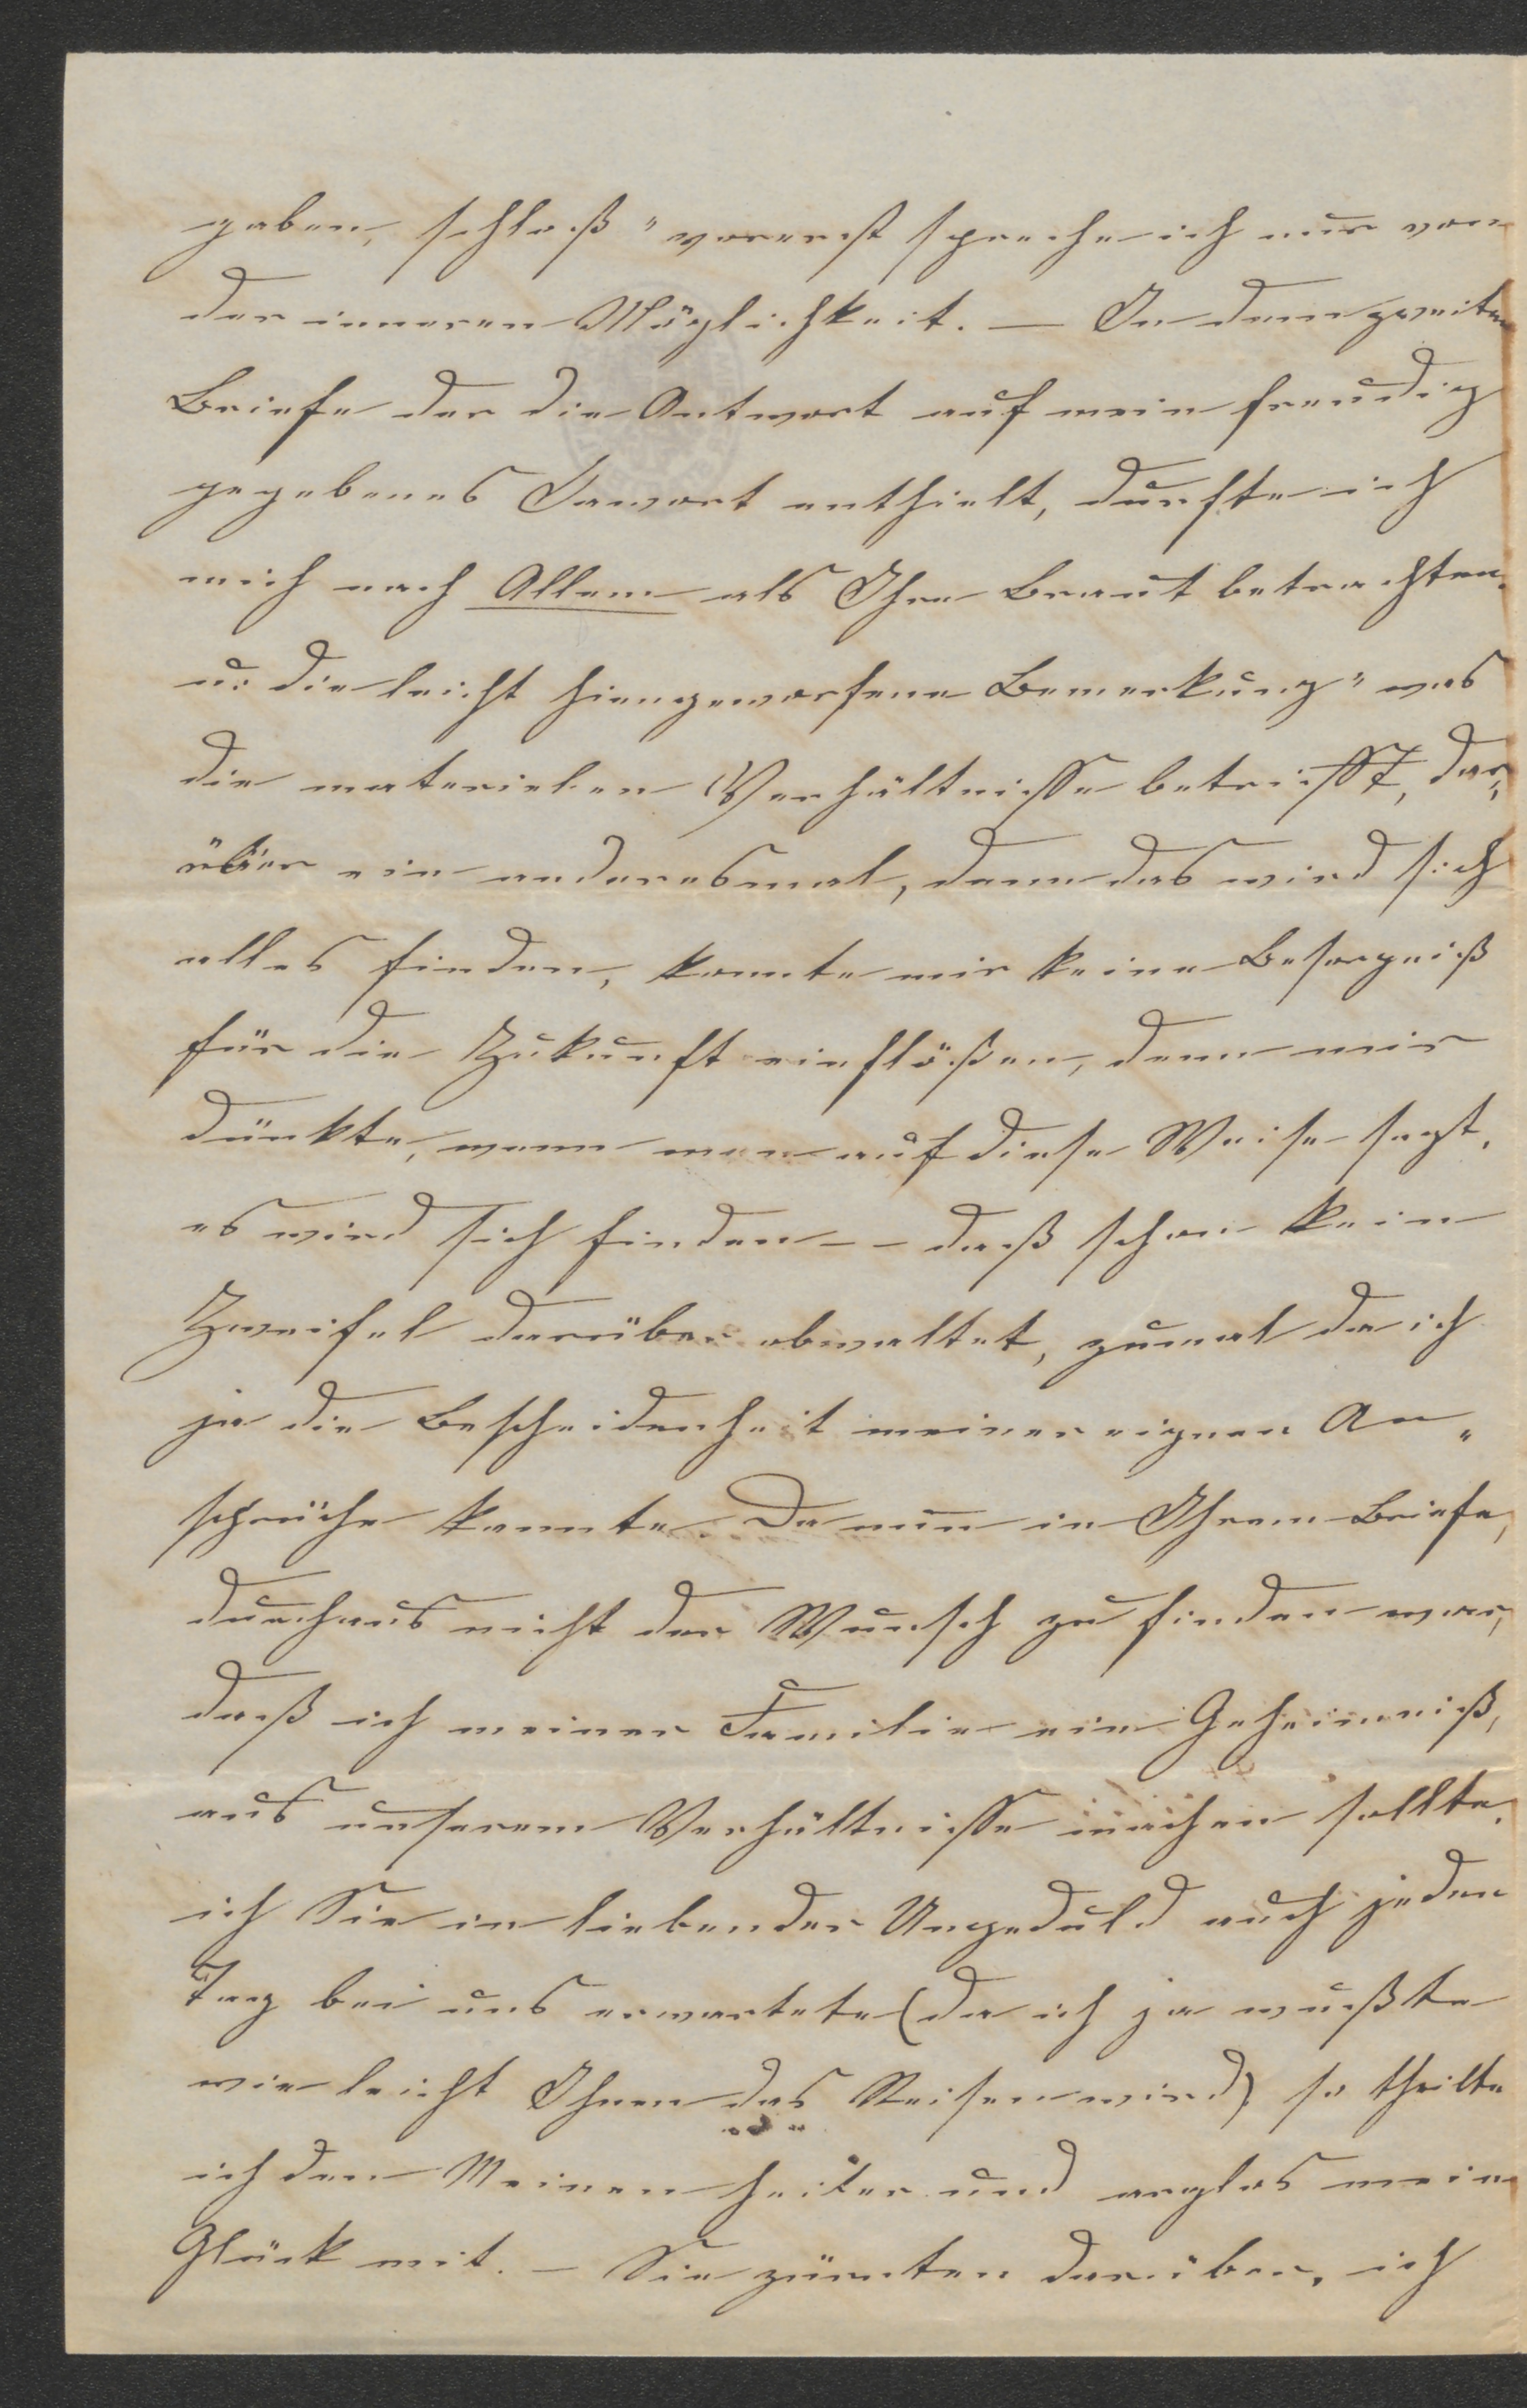 gaben, schloß "vorerst spreche ich nur von
der inneren Möglichkeit. — In dem zweiten
Briefe der die Antwort auf mein freudig
gegebenes Jawort enthielt, durfte ich
mich nach Allem als Ihre Braut betrachten.
u: die leicht hiengeworfene Bemerkung "was
die materielen Verhältnisse betrifft, dar„
über ein anderesmal, denn das wird sich
alles finden, konnte mir keine Besorgniß
für die Zukunft einflößen, denn mir
dünkte, wenn man auf diese Weise sagt,
es wird sich finden – – daß schon kein
Zweifel darüber obwaltet, zumal da ich
ja die Bescheidenheit meiner eignen An„
sprüche kannte. Da nun in Ihrem Briefe,
durchaus nicht der Wunsch zu finden war,
daß ich meiner Familie ein Geheimniß,
aus unserem Verhältnisse machen sollte,
ich Sie in liebender Ungeduld auch jeden
Tag bei uns erwartete (da ich ja wußte
wie leicht Ihnen das Reisen wird) so theilte
ich den Meinen heiter und arglos mein
Glück mit. – Sie zürnten darüber, ich